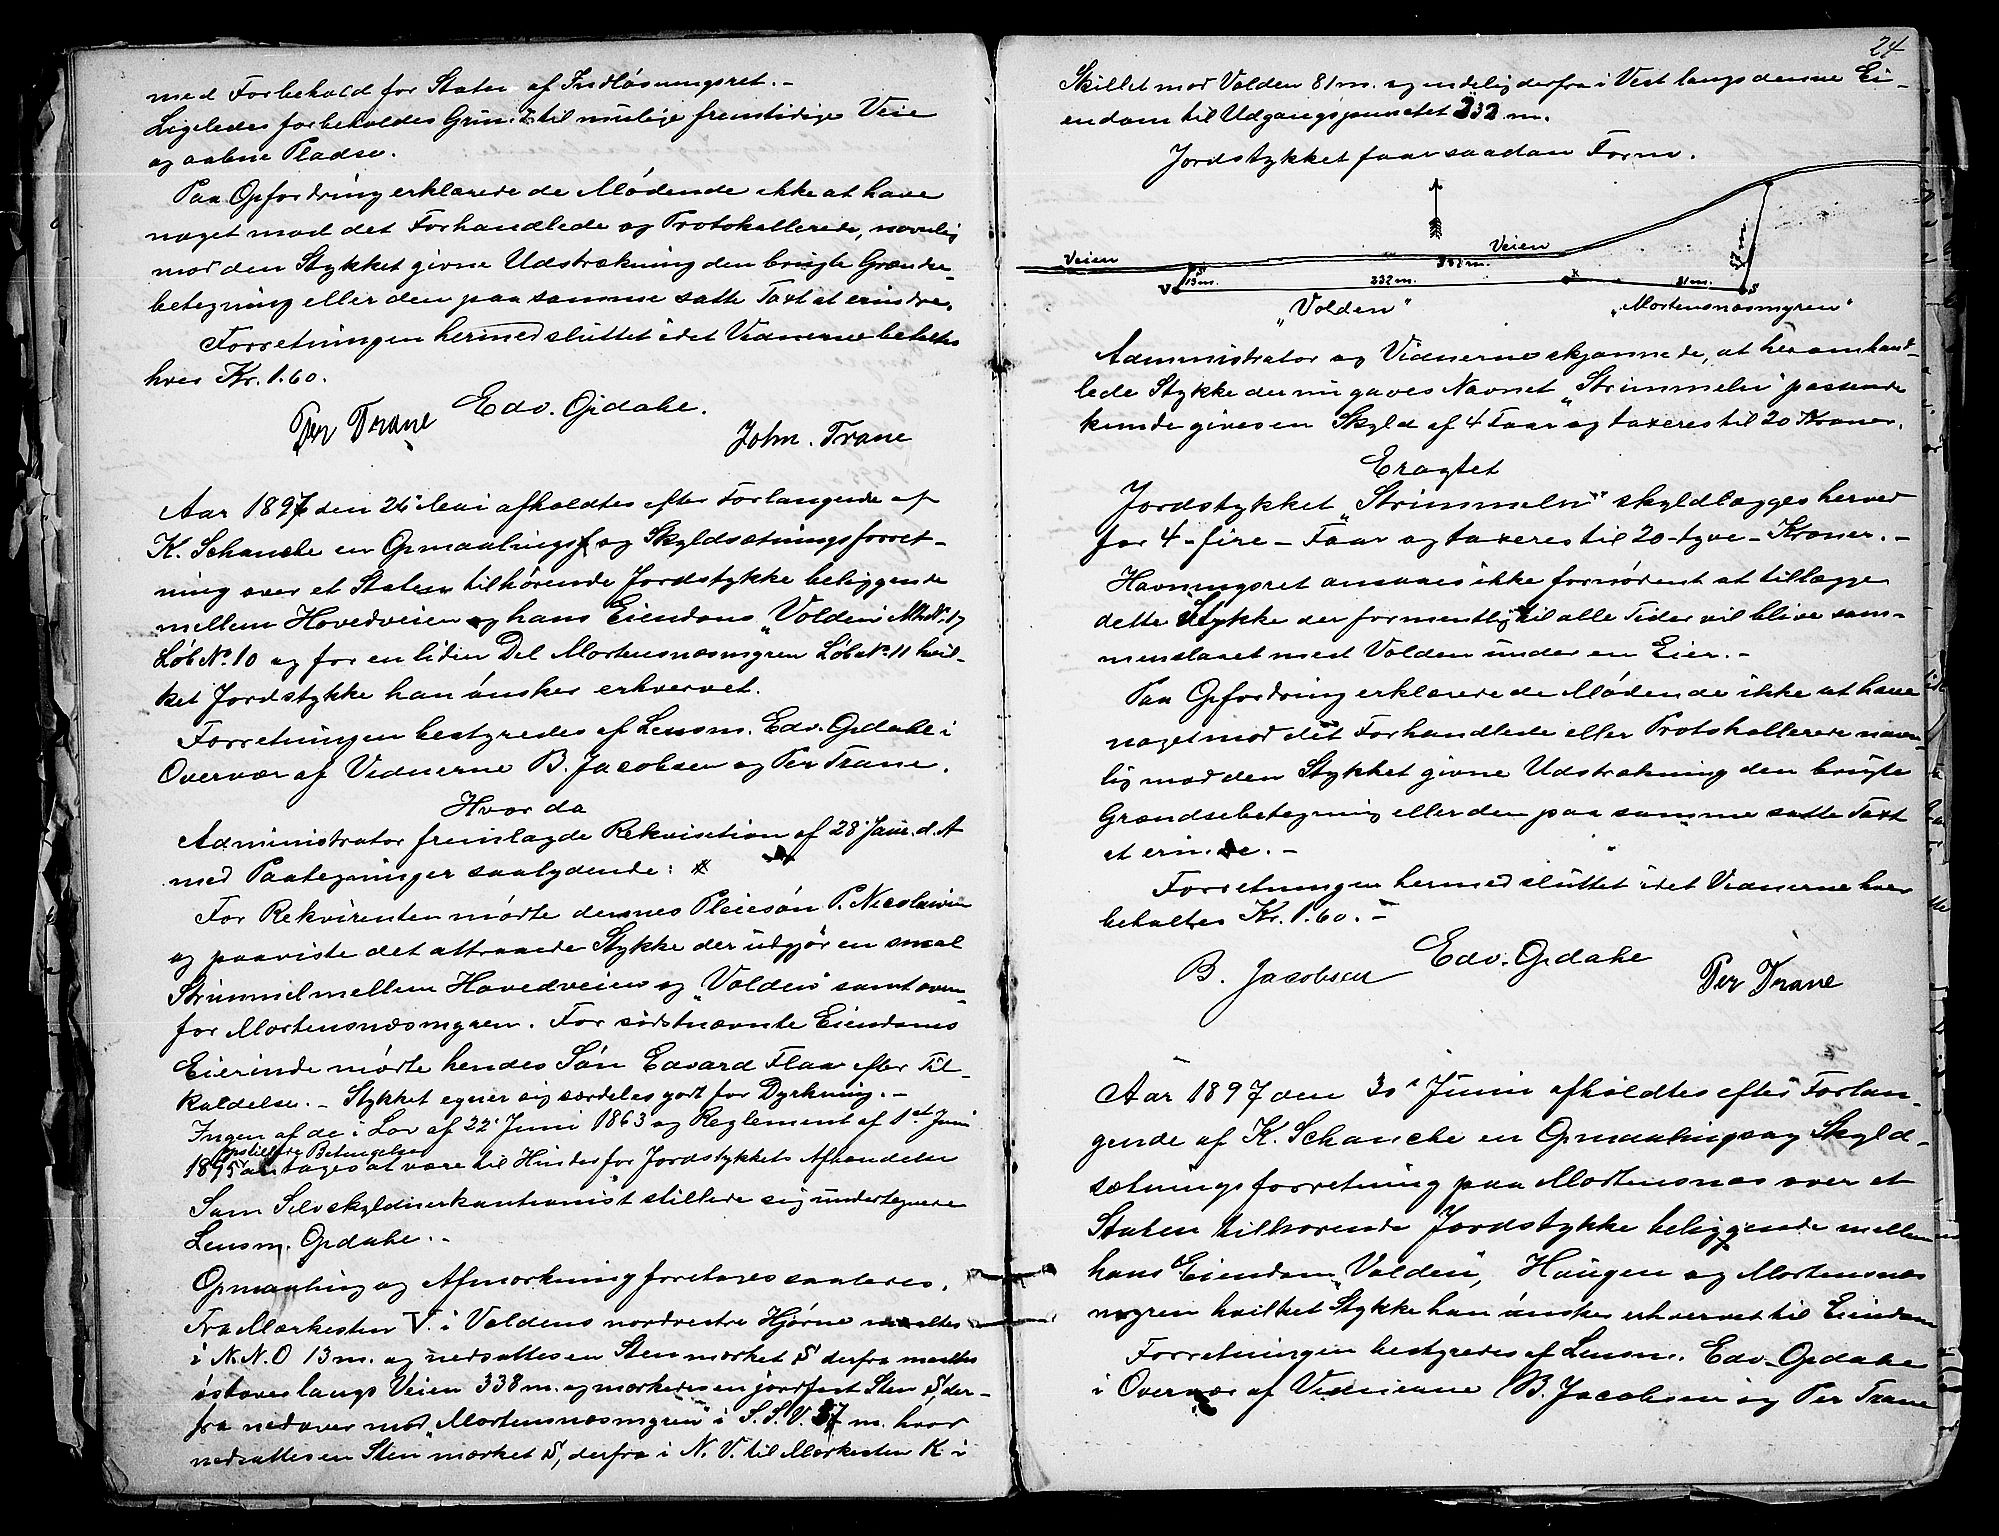 med Forbehold for Staten af Indløsningsret.-
Ligeledes forbeholdes Grund til mulige fremtidige Veie
og aabne Pladse.
Paa Opfordring erklærede de Mødende ikke at have
noget mod det Forhandlede og Protokollerede, navnlig
mod den Stykket givne Udstrækning den brugte Grændse-
betegning eller den paa samme satte Taxt at erindre.
Forretningen hermed sluttet idet Vidnerne betaltes
hver Kr. 1.60.
Edv. Opdahl.
Per Trane
John. Trane
Aar 1897 den 26' Mai afholdtes efter Forlangende af
K. Schanche en Opmaalings og Skyldsætningsforret-
ning over et Staten tilhørende Jordstykke beliggende
mellem Hovedveien og hans Eiendom „Volden" M.No. 17
Løb No. 10 og for en liden Del Mortensnæsmyren Løb No. 11 hvil-
ket Jordstykke han ønsker erhvervet.
Forretningen bestyredes af Lensm. Edv. Opdahl i
Overvær af Vidnerne B. Jacobsen og Per Trane.
Hvor da
Administrator fremlagde Rekvisition af 28' Janr. d. A
med Paategninger saalydende: 
For Rekvirenten mødte dennes Pleiesøn P. Nicolaisen
og paaviste det attraaede Stykke der udgjør en smal
Strimmel mellem Hovedveien og „Volden" samt oven-
for Mortensnæsmyren. For sidstnævnte Eiendoms
Eierinde mødte hendes Søn Edvard Flaa efter Til-
kaldelse. - Stykket egner sig særdeles godt for Dyrkning. -
Ingen af de i Lov af 22' Juni 1863 og Reglement af 1st Juni
1895 opstillede Betingelser antages at være til Hinder for Jordstykkets Afhændelse
Som Selvskyldnerkautionist stillede sig undertegnede
Lensm. Opdahl. -
Opmaaling og Afmærkning foretoges saaledes.
Fra Mærkesten V. i Voldens nordvestre Hjørne maaltes
i N.N.O 13 m. og nedsattes en Sten mærket S derfra maaltes
østover langs Veien 338 m. og mærkedes en jordfast Sten S, der-
fra nedover mod „Mortensnæsmyren" i S.S.V. 57 m. hvor
nedsattes en Sten mærket S, derfra i N.V. til Mærkesten K i
24
Skillet mod Volden 81 m. og endelig derfra i Vest langs denne Ei-
endom til Udgangspunctet 332 m.
Jordstykket faar saadan Form.
Veien
Veien
338 m.
57 m.
S
13 m.
332 m.
K
81 m.
V
S
„Volden"
„Mortensnæsmyren"
Administrator og Vidnerne skjønnede, at heromhand-
lede Stykke der nu gaves Navnet „Strimmelen" passende
kunde gives en Skyld af 4 Faar og taxeres til 20 Kroner.
Eragtet
Jordstykket „Strimmelen" skyldlægges herved
for 4 - fire - Faar og taxeres til 20 - tyve - Kroner. -
Havningsret ansaaes ikke fornødent at tillægge
dette Stykke der formentlig til alle Tider vil blive sam-
menslaaet med Volden under en Eier. -
Paa Opfordring erklærede de Mødende ikke at have
noget mod det Forhandlede eller Protokollerede navn-
lig mod den Stykket givne Udstrækning den brugte
Grændsebetegning eller den paa samme satte Taxt
at erindre. -
Forretningen hermed sluttet idet Vidnerne hver
betaltes Kr. 1.60. -
Edv. Opdahl
B. Jacobsen
Per Trane
Aar 1897 den 30' Juni afholdtes efter Forlan-
gende af K. Schanche en Opmaalings og Skyld-
sætningsforretning paa Mortensnæs over et
Staten tilhørende Jordstykke beliggende mellem
hans Eiendom „Volden", Haugen og Mortensnæs
myren hvilket Stykke han ønsker erhvervet til Eiendom
Forretningen bestyredes af Lensm. Edv. Opdahl
i Overvær af Vidnerne B. Jacobsen og Per Trane